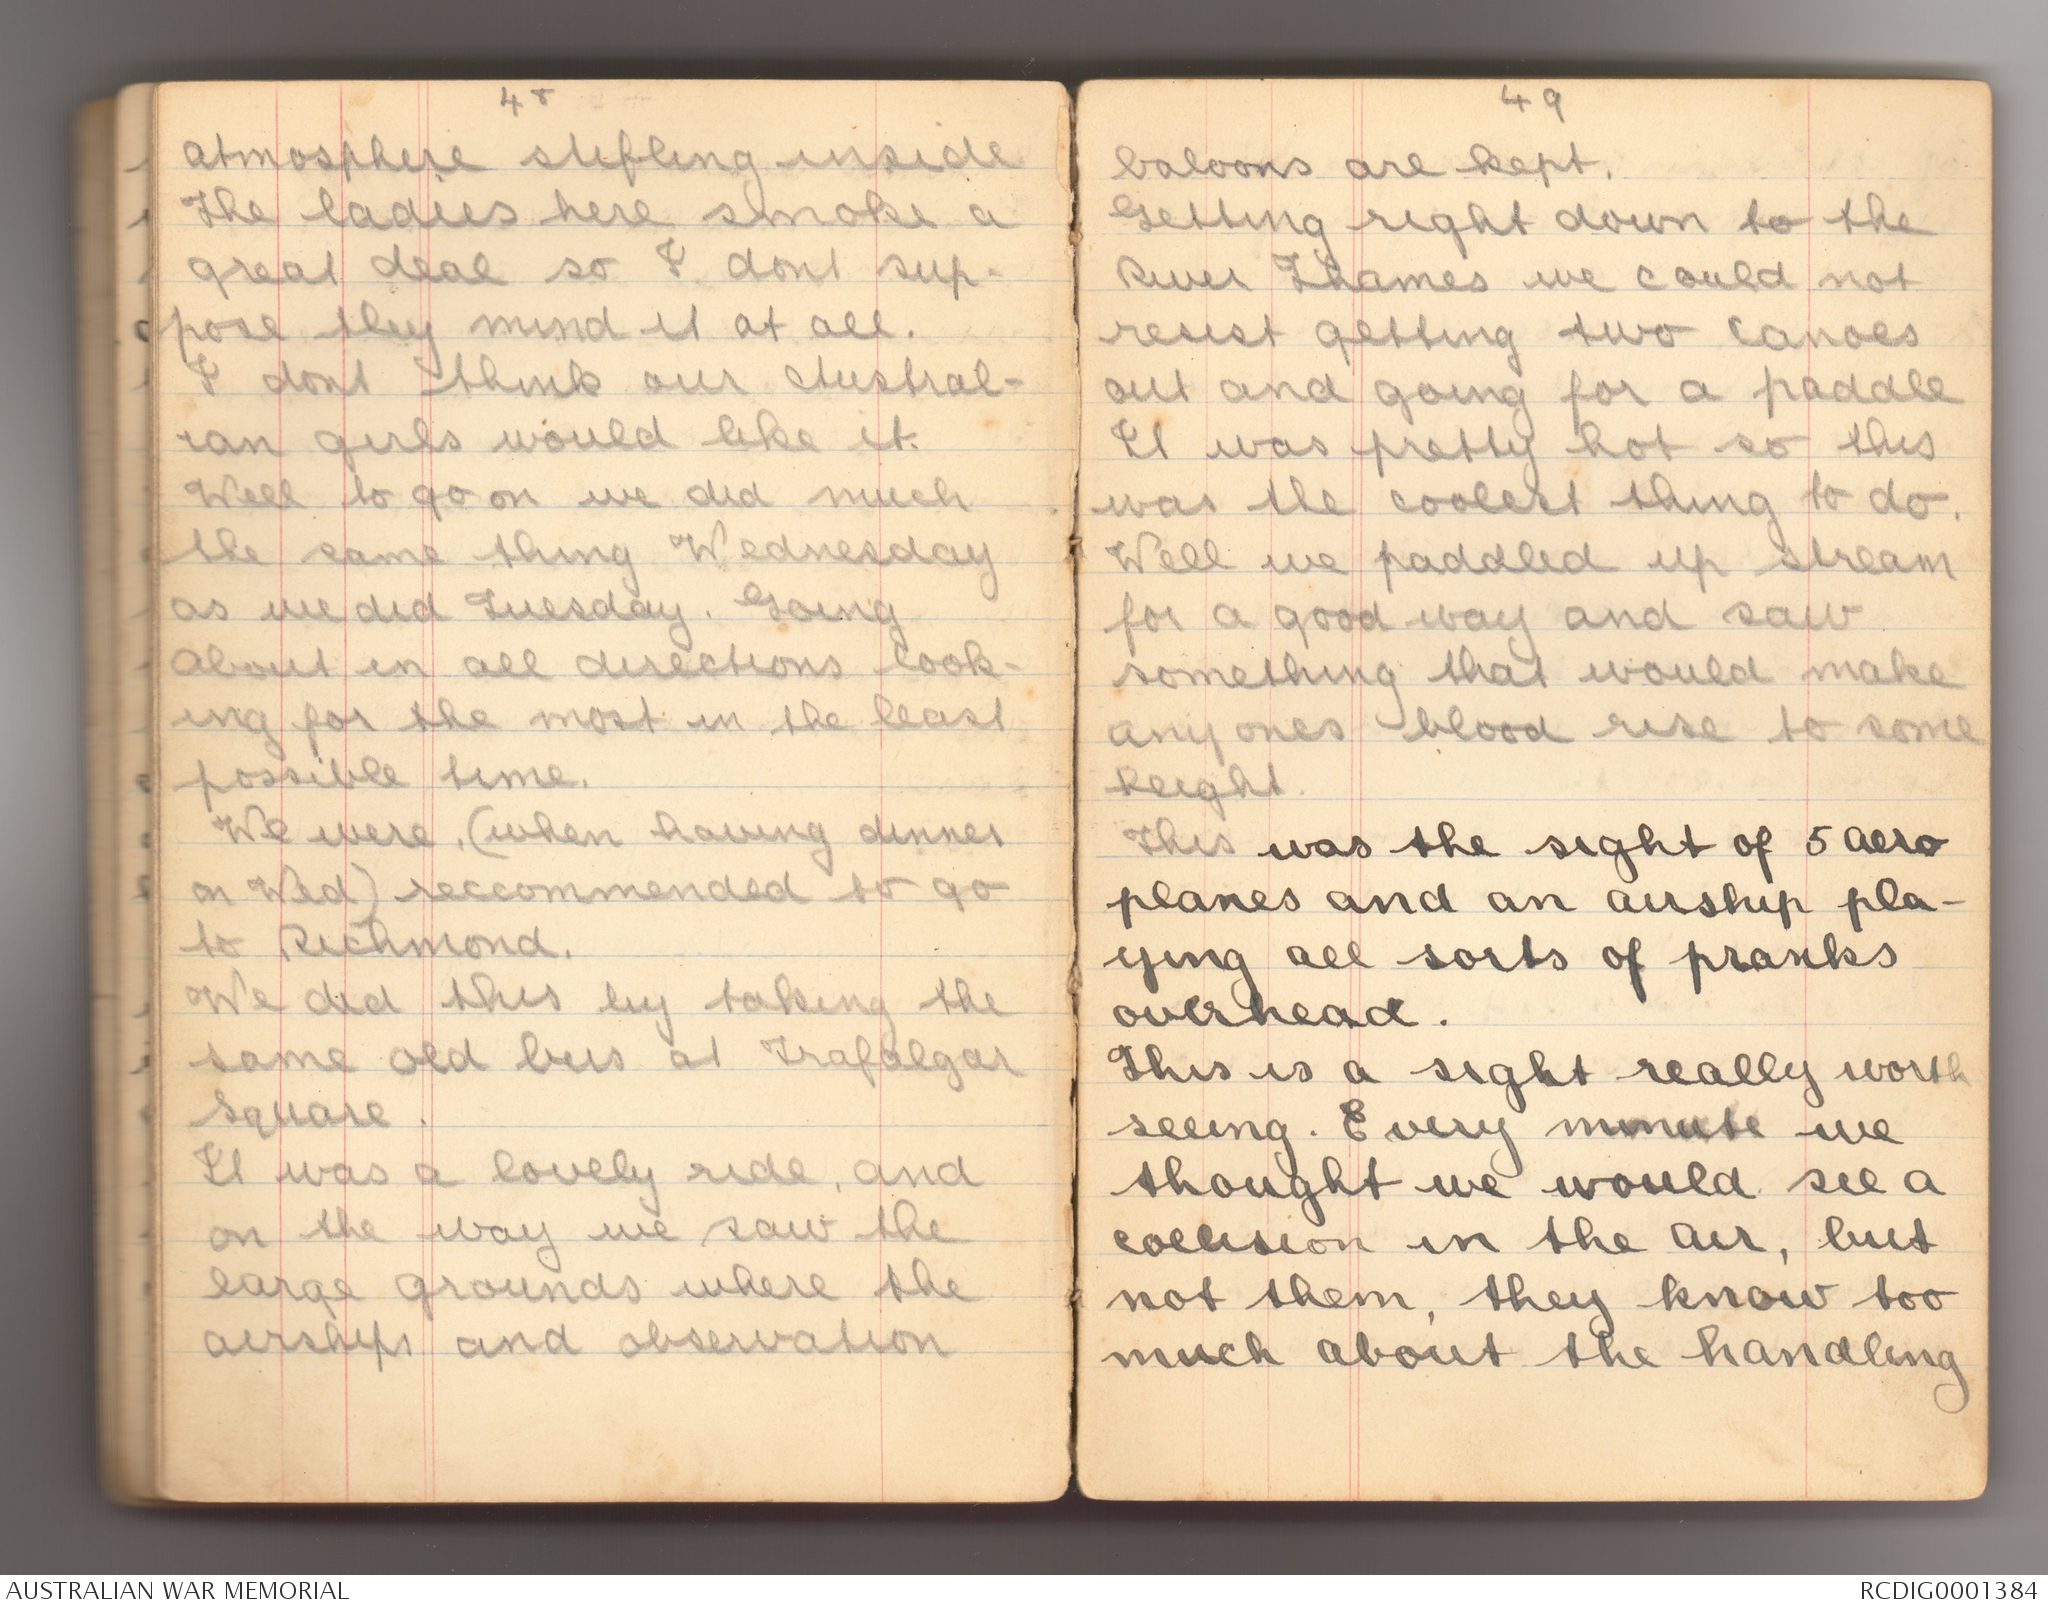 48
atmosphere stifling inside
The ladies here smoke a
great deal so I dont sup-
pose they mind it at all.
I dont think our Austral-
ian girls would like it.
Well to go on we did much
the same thing Wednesday
as we did Tuesday. Going
about in all directions look-
ing for the most in the least
possible time.
We were, (when having dinner
on Wed) reccommended to go
to Richmond.
We did this by taking the
same old bus at Trafalgar
Square.
It was a lovely ride, and
on the way we saw the
large grounds where the
airships and observation
49
baloons are kept.
Getting right down to the
River Thames we could not
resist getting two canoes
out and going for a paddle
It was pretty hot so this
was the coolest thing to do.
Well we paddled up stream
for a good way and saw
something that would make
any ones blood rise to some
height.
This was the sight of 5 aero
planes and an airship pla-
ying all sorts of pranks
overhead.
This is a sight really worth
seeing. Every minute we
thought we would see a
collision in the air, but
not them, they know too
much about the handling
AUSTRALIAN WAR MEMORIAL
RCDIG0001384